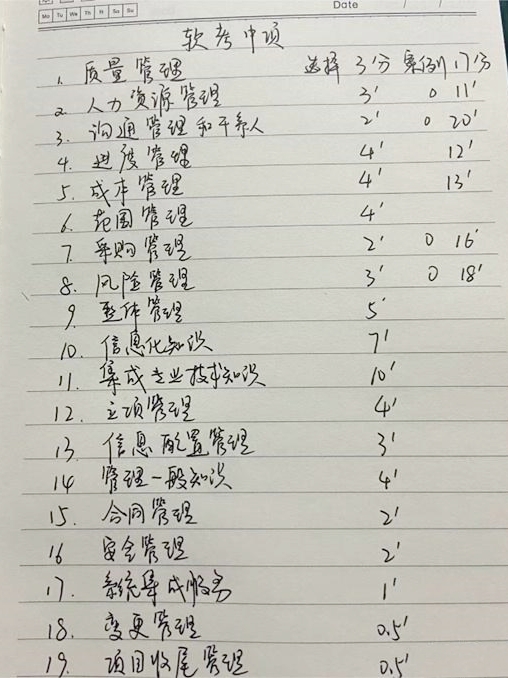 Mo Tu We Th Fr Sa Su Date / /
软考中项
1. 质量管理 选择 3分 案例 17分
2. 人力资源管理 3' 0 11'
3. 沟通管理和干系人 2' 0 20'
4. 进度管理 4' 12'
5. 成本管理 4' 13'
6. 范围管理 4'
7. 采购管理 2' 0 16'
8. 风险管理 3' 0 18'
9. 整体管理 5'
10. 信息化知识 7'
11. 集成专业技术知识 10'
12. 立项管理 4'
13. 信息配置管理 3'
14 管理一般知识 4'
15. 合同管理 2'
16 安全管理 2'
17. 系统集成服务 1'
18. 变更管理 0.5'
19. 项目收尾管理 0.5'